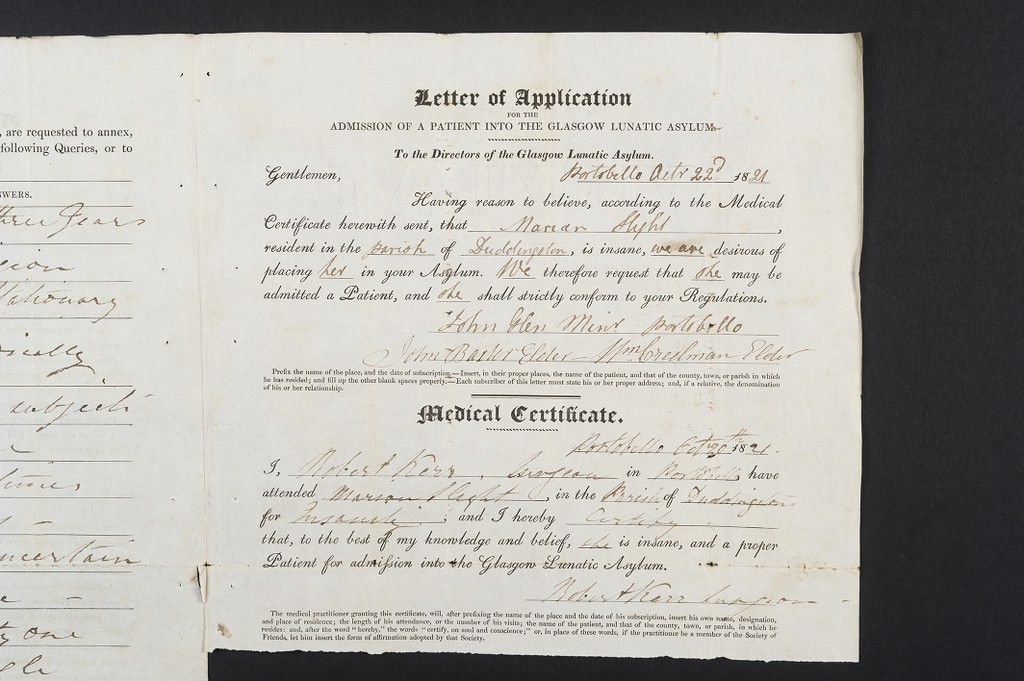 , are requested to annex,
following Queries, or to
WERS.
three Years
Stationary
sically
subject
times
uncertain
ty one
gle
Letter of Application
FOR THE
ADMISSION OF A PATIENT INTO THE GLASGOW LUNATIC ASYLUM.
To the Directors of the Glasgow Lunatic Asylum.
Gentlemen,
Portobello Octr 22d 1821
Having reason to believe, according to the Medical
Certificate herewith sent, that Marian Slight,
resident in the parish of Duddingston, is insane, we are desirous of
placing her in your Asylum. We therefore request that she may be
admitted a Patient, and she shall strictly conform to your Regulations.
John Glen Minr Portobello
John Baxter Elder - Wm Creelman Elder
Prefix the name of the place, and the date of subscription.—Insert, in their proper places, the name of the patient, and that of the county, town, or parish in which
he has resided; and fill up the other blank spaces properly.—Each subscriber of this letter must state his or her proper address; and, if a relative, the denomination
of his or her relationship.
Medical Certificate.
Portobello Oct 20th 1821.
I, Robert Kerr, Surgeon in Portobello have
attended Marion Slight, in the Parish of Duddingston
for Insanity; and I hereby Certify
that, to the best of my knowledge and belief, she is insane, and a proper
Patient for admission into the Glasgow Lunatic Asylum.
Robert Kerr Surgeon
The medical practitioner granting this certificate, will, after prefixing the name of the place and the date of his subscription, insert his own name, designation,
and place of residence; the length of his attendance, or the number of his visits; the name of the patient, and that of the county, town, or parish, in which he
resides: and, after the word "hereby," the words "certify, on soul and conscience;" or, in place of these words, if the practitioner be a member of the Society of
Friends, let him insert the form of affirmation adopted by that Society.